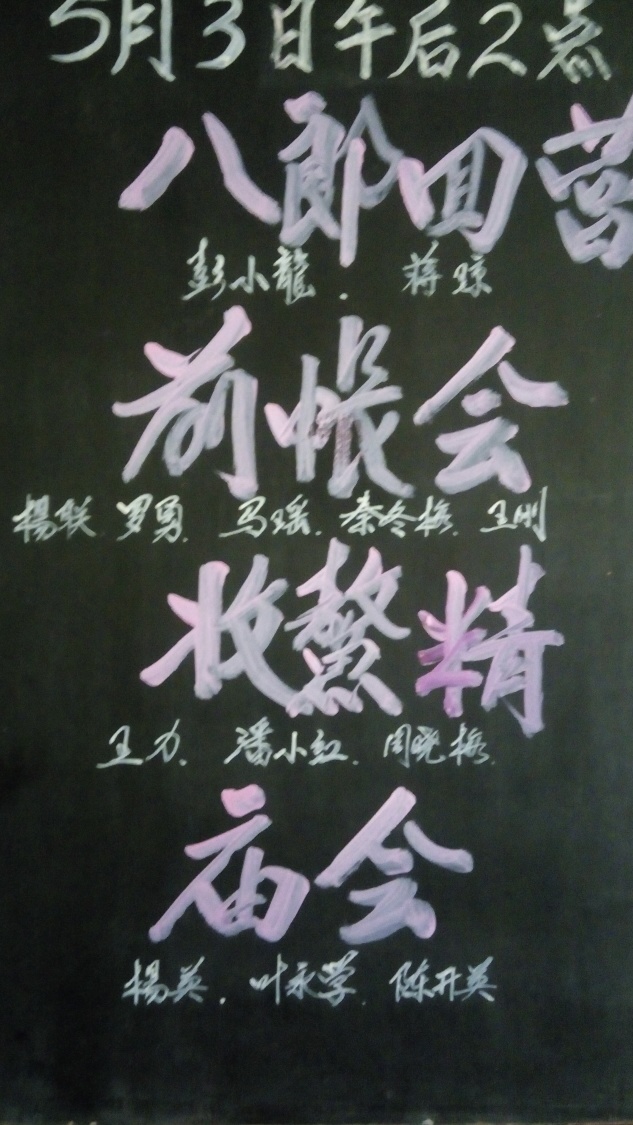 5月3日午后2点
八郎回营
彭小龍.蒋琼
前帐会
楊联 罗勇.马瑶.秦冬梅.王刚
收鳌精
王力.潘小红.周晓梅.
庙会
楊英.叶永学.陈开英